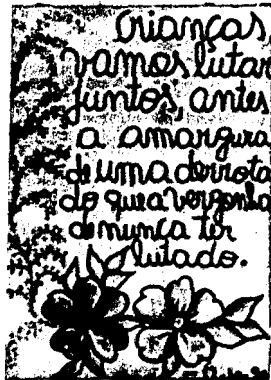 crianças,
vamos lutar
juntos, antes
a amargura
de uma derrota
do que a vergonha
de nunca ter
lutado.